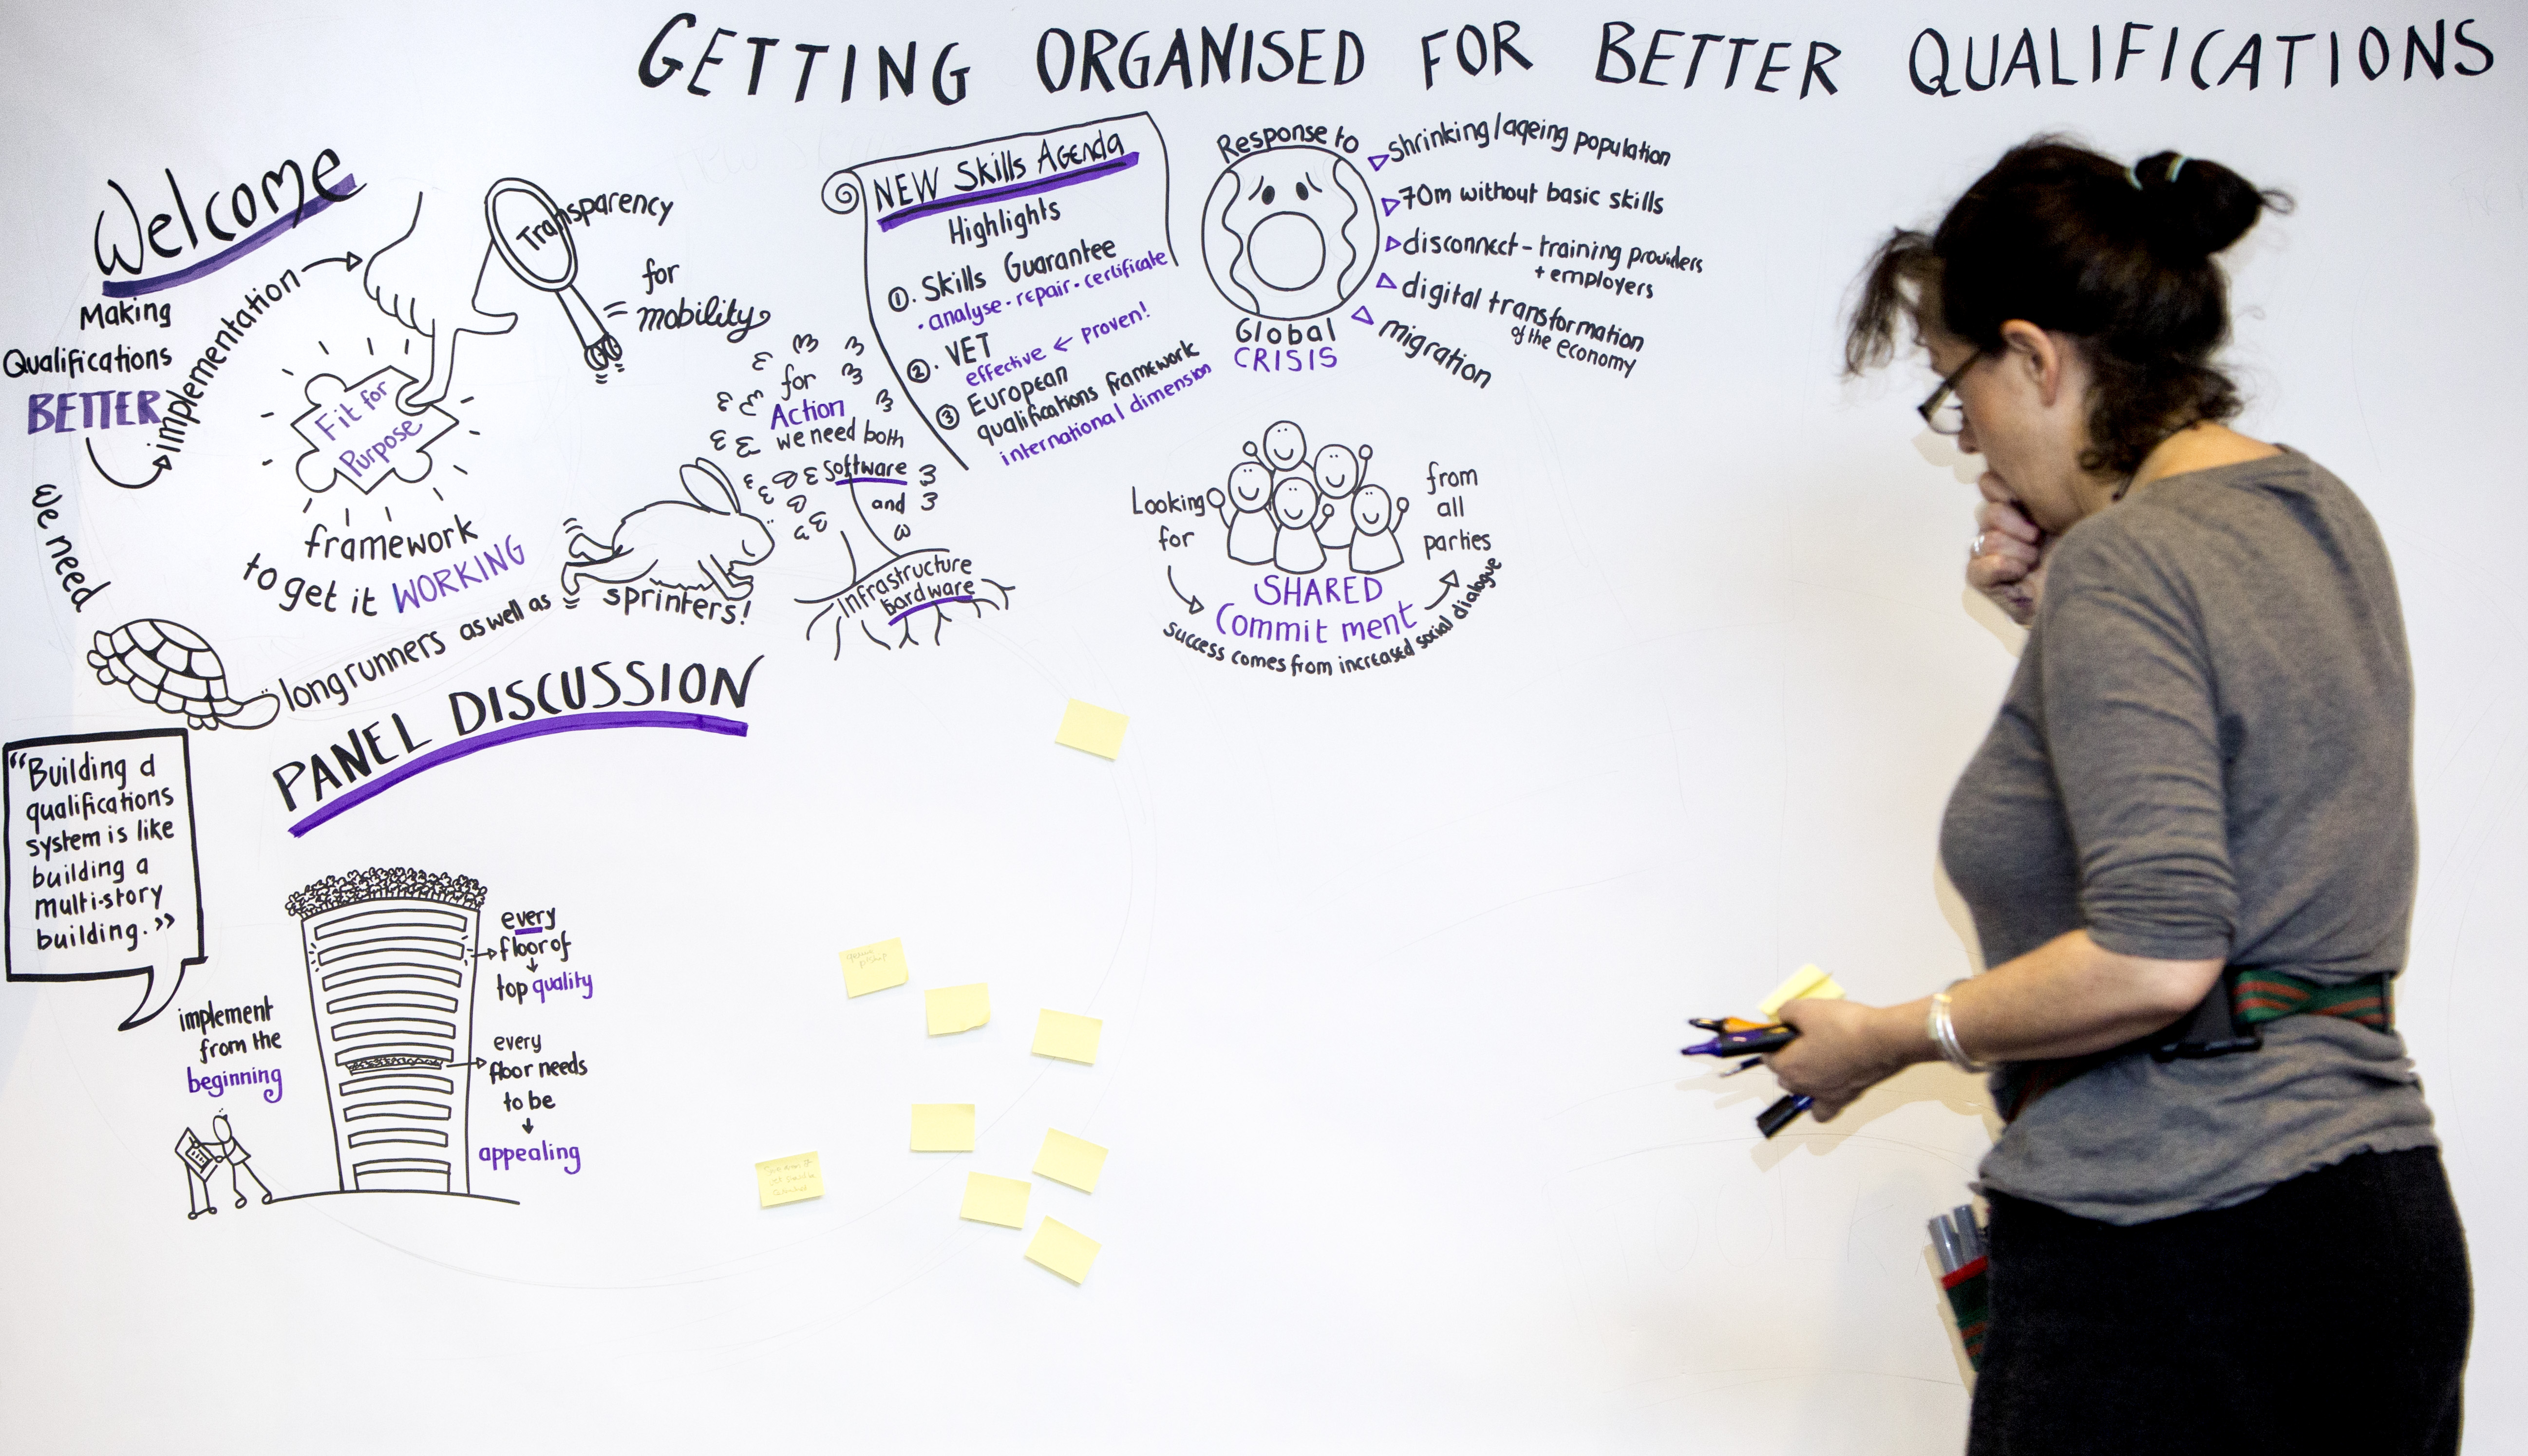 GETTING ORGANISED FOR BETTER QUALIFICATIONS
Welcome
Making
Qualifications
BETTER
implementation
Transparency
=
for
mobility
Fit for
Purpose
framework
to get it WORKING
we need
long runners as well as
sprinters!
for
Action
we need both
Software
and
Infrastructure
hardware
NEW Skills Agenda
Highlights
①. Skills Guarantee
• analyse • repair • certificate
②. VET
effective ← Proven!
③ European
qualifications framework
international dimension
Response to
Global
CRISIS
shrinking/ageing population
70m without basic skills
disconnect - training providers
+ employers
digital transformation
of the economy
migration
Looking
for
SHARED
Commitment
from
all
parties
success comes from increased social dialogue
PANEL DISCUSSION
“Building a
qualifications
system is like
building a
multi-story
building.”
implement
from the
beginning
every
floor of
top quality
every
floor needs
to be
appealing